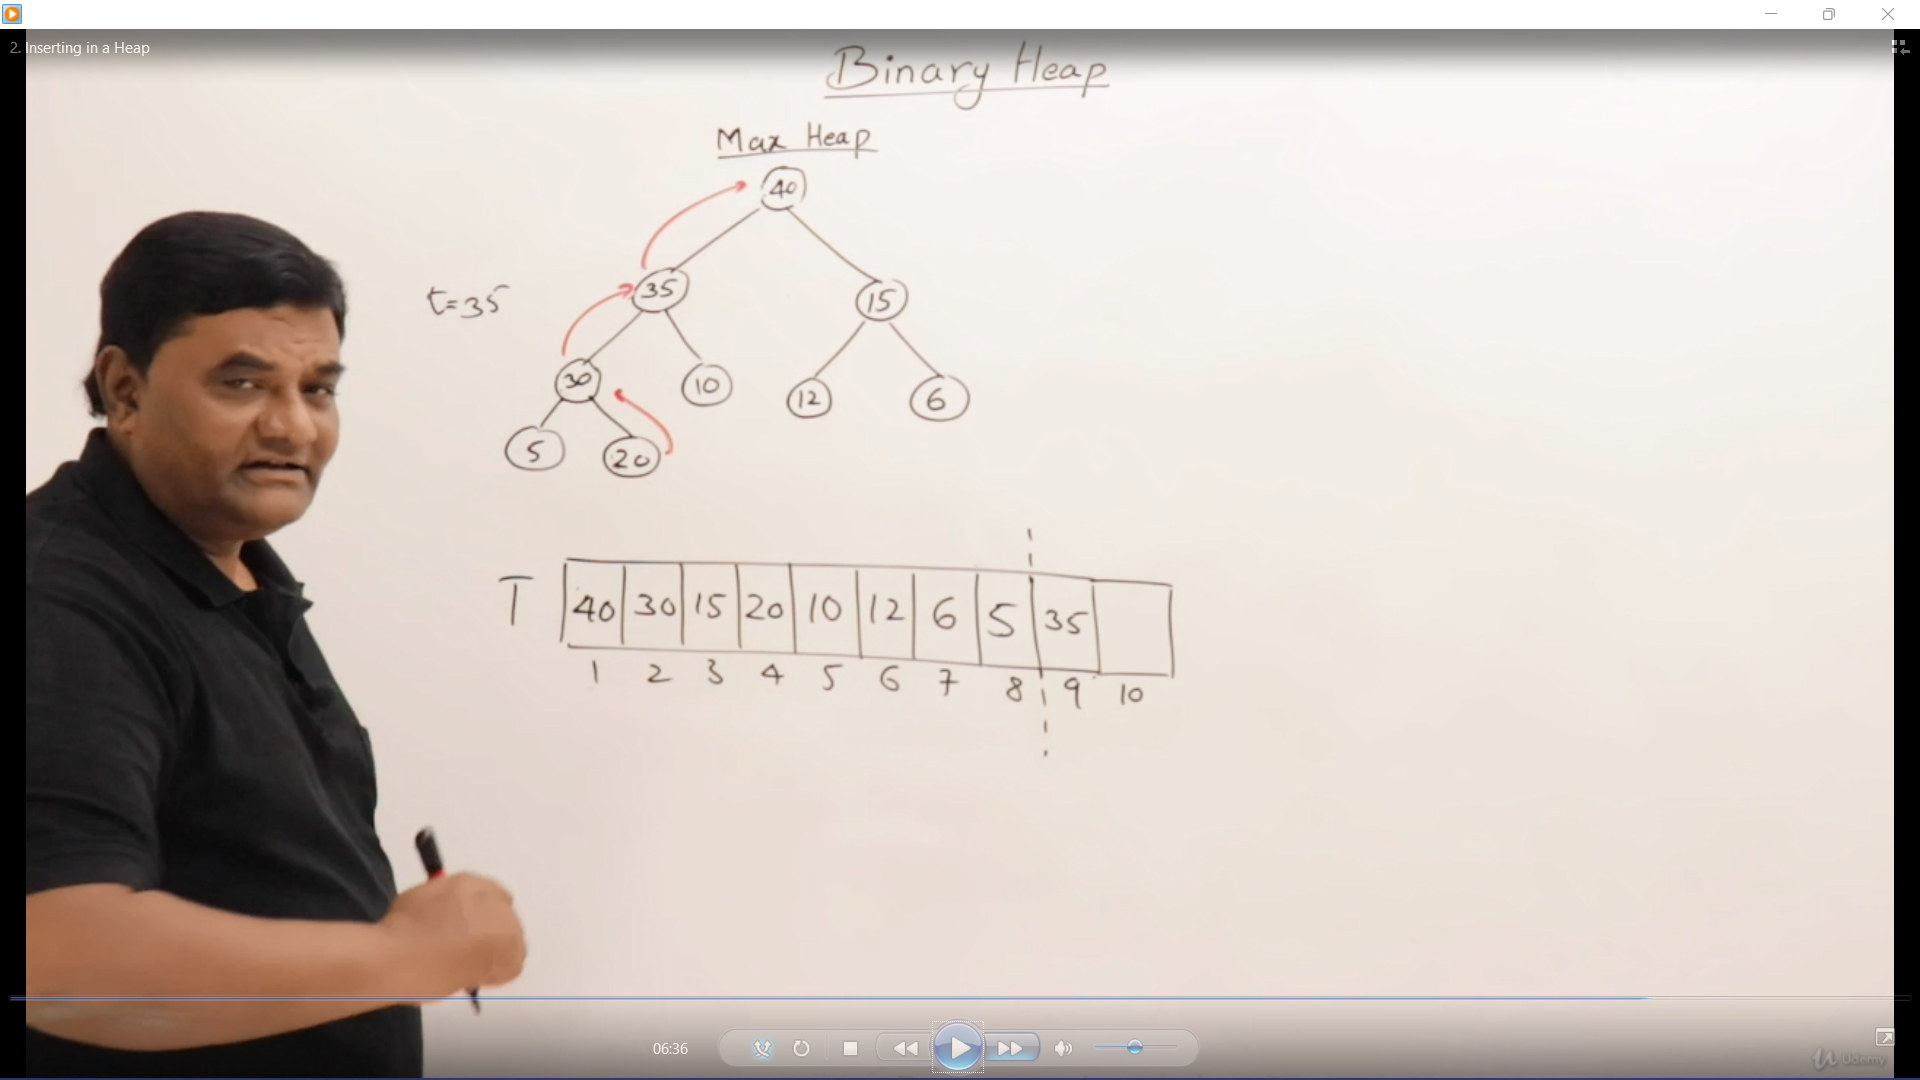 2. Inserting in a Heap
Binary Heap
Max Heap
40
t=35
35
15
30
10
12
6
5
20
T
40 30 15 20 10 12 6 5 35
1 2 3 4 5 6 7 8 9 10
06:36
Udemy